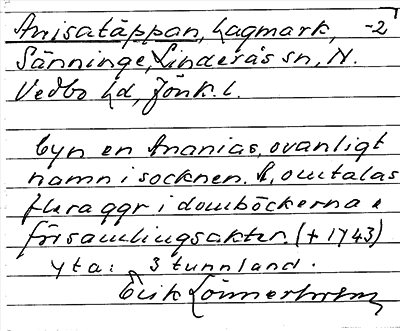 Anisatäppan, Lagmark, -2
Sänninge, Linderås sn, N.
Vedbo hd, Jönk. l.
Cyn en Ananias, ovanligt
namn i socknen. A, omtalas
flera ggr i domböckerna &
församlingsakter. (+ 1743)
yta: 3 tunnland.
Erik Lönnerholm